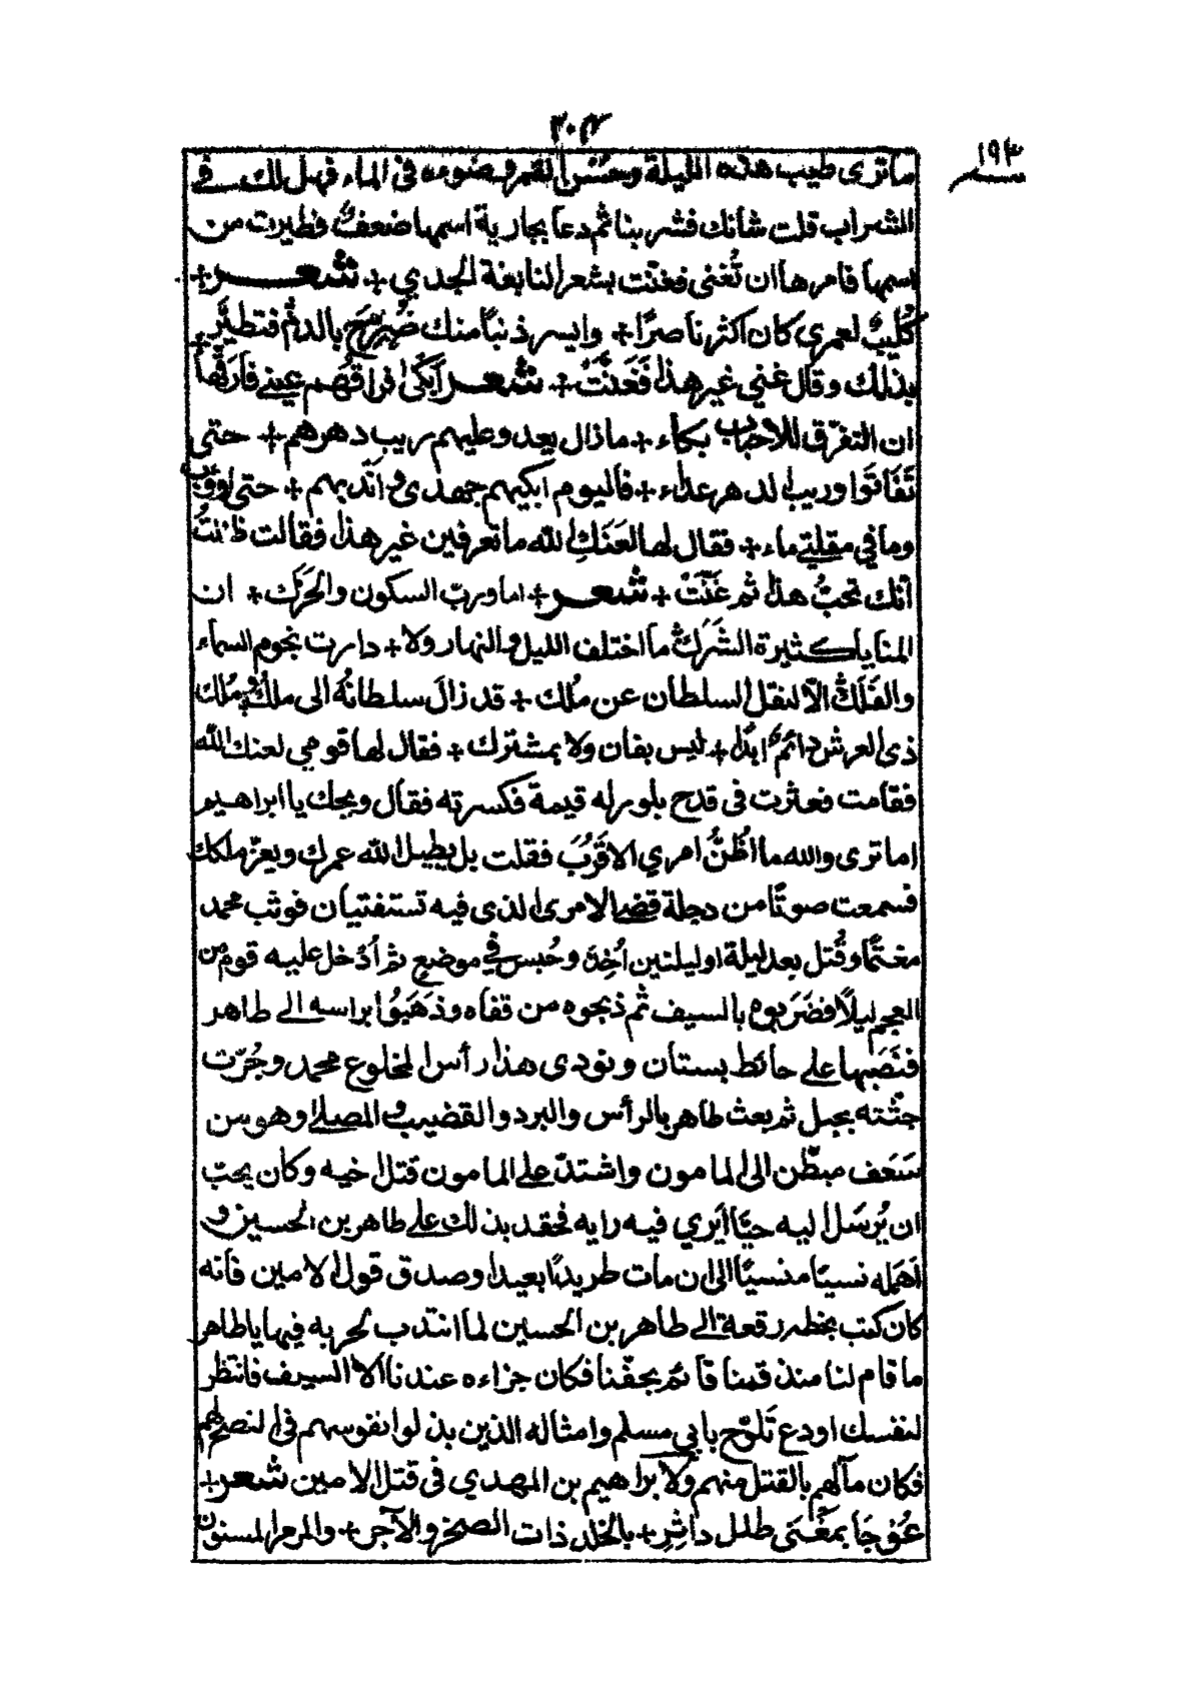 ٣٠٣
١٩٣
ما ترى طيب هذه الليلة وحسن القمر وضوءه فى الماء فهل لك فى
الشراب قلت شأنك فشربنا ثم دعا بجارية اسمها ضعف فطيرت من
اسمها فامرها ان تُغنى فغنّت بشعر النابغة الجعدي + شعر +
كُليبٌ لعمرى كان اكثر ناصرًا + وايسر ذنبًا منك ضُرّج بالدم فتطيّر +
بذلك وقال غني غير هذا فَغَنَّتْ + شعر أبكى فراقهم عينى فأرّقها
ان التفرّق للاحباب بكاء + مازال يعدو عليهم ريب دهرهم + حتى
تَفَانَوا وريب الدهر عداء + فاليوم ابكيهم جهدى و اندبهم + حتى اؤوب
وما في مقلتى ماء + فقال لها لعَنَكِ الله ما تعرفين غير هذا فقالت ظننتُ
انّك تحبُّ هذا ثم غَنَّتْ + شعر + اما ورب السكون والحَرَك + ان
المنايا كثيرة الشَرَك ما اختلف الليل و النهار ولا + دارت نجوم السماء
والفَلَك الّا لنقل السلطان عن ملك + قد زالَ سلطانُه الى ملك وملك
ذى العرش دائم ابدًا + ليس بفان ولا بمشترك + فقال لها قومي لعنك الله
فقامت فعثرت فى قدح بلور له قيمة فكسرته فقال ويحك يا ابراهيم
اما ترى والله ما اظُنُّ امري الا قَرُبَ فقلت بل يطيل الله عمرك ويعزّ ملكك
فسمعت صوتًا من دجلة قضى الامر الذى فيه تستفتيان فوثب محمد
مغتمًا وقُتل بعد ليلة او ليلتين أُخِذ وحُبس في موضع ثم أُدْخل عليه قوم من
العجم ليلًا فضَرَبوه بالسيف ثم ذبحوه من قفاه وذَهَبُوا براسه الى طاهر
فنَصَبها على حائط بستان ونودى هذا رأس المخلوع محمد وجُرّت
جثّته بحبل ثم بعث طاهر بالرأس والبرد والقضيب و المصلى وهو من
سَعَف مبطّن الى المامون واشتدّ على المامون قتل اخيه وكان يحبّ
ان يُرسَل اليه حيًّا ليَرى فيه رايه فحقد بذلك على طاهر بن الحسين و
اهمله نسيًا منسيًا الى ان مات طريدًا بعيدا وصدق قول الامين فانه
كان كتب بخطه رقعة الى طاهر بن الحسين لما انتدب لحربه فيها يا طاهر
ما قام لنا منذ قمنا قائم بحقّنا فكان جزاءه عندنا الا السيف فانظر
لنفسك او دع تَلوّح بابي مسلم وامثاله الذين بذلوا نفوسهم فى النصح لهم
فكان مآلهم بالقتل منهم ولابراهيم بن المهدي فى قتل الامين شعر +
عُوْجَا بمَغْنَى طلل داثِرٍ + بالخلد ذات الصخر والآجر + والمرمر المسنون